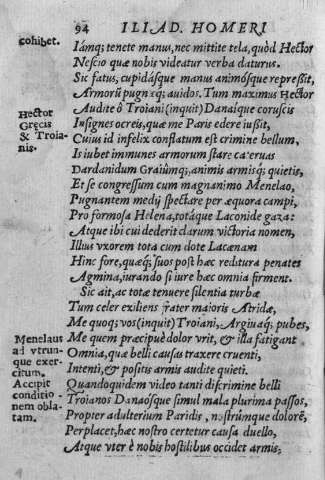 94 ILIAD. HOMERI
cohibet.
Iámq; tenete manus, nec mittite tela, quòd Hector
Nescio quæ nobis videatur verba daturus.
Sic fatus, cupidásque manus animósque repreßit,
Armorū pugnæq; auidos. Tum maximus Hector
Hector
Gręcis
& Troia-
nis.
Audite ô Troiani (inquit) Danaiq́ue coruscis
Insignes ocreis, quæ me Paris edere iußit,
Cuius id infelix conflatum est crimine bellum,
Is iubet immunes armorum stare cateruas
Dardanidum Graiûmq;, animis armisq; quietis,
Et se congressum cum magnanimo Menelao,
Pugnantem medij spectare per æquora campi,
Pro formosa Helena, totáque Laconide gaza:
Atque ibi cui dederit clarum victoria nomen,
Illius vxorem tota cum dote Lacænam
Hinc fore, quæq; suos post hæc reditura penates
Agmina, iurando si iure hæc omnia firment.
Sic ait, ac totæ tenuere silentia turbæ
Tum celer exiliens frater maioris Atridæ,
Me quoq; vos (inquit) Troiani, Argiuaq; pubes,
Menelaus
ad vtrun-
que exer-
citum.
Accipit
conditio-
nem obla-
tam.
Me quem præcipuè dolor vrit, & illa fatigant
Omnia, quæ belli causas traxere cruenti,
Intenti, & positis armis audite quieti.
Quandoquidem video tanti discrimine belli
Troianos Danaósque simul mala plurima passos,
Propter adulterium Paridis, nostrúmque dolorē,
Perplacet, hæc nostro certetur causa duello,
Atque vter è nobis hostilibus occidet armis,